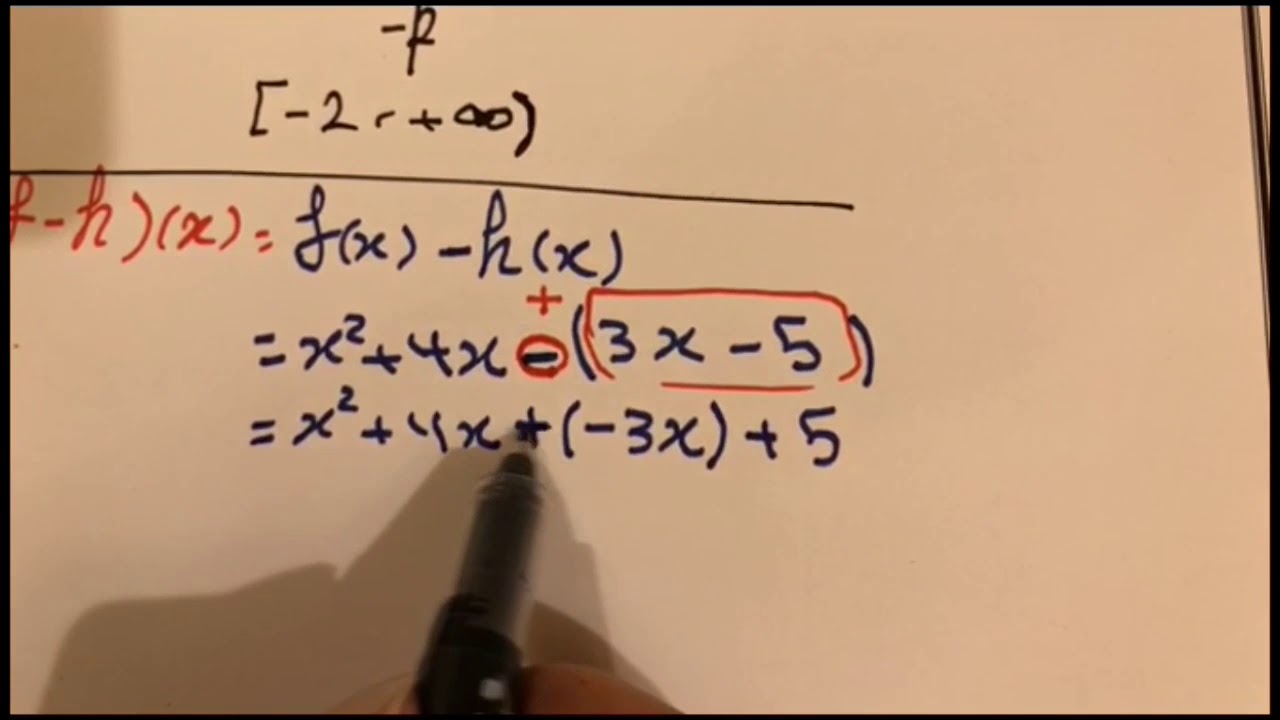 -f
[-2, +∞)
f-h)(x) = f(x) - h(x)
+
= x² + 4x - (3x - 5)
= x² + 4x + (-3x) + 5